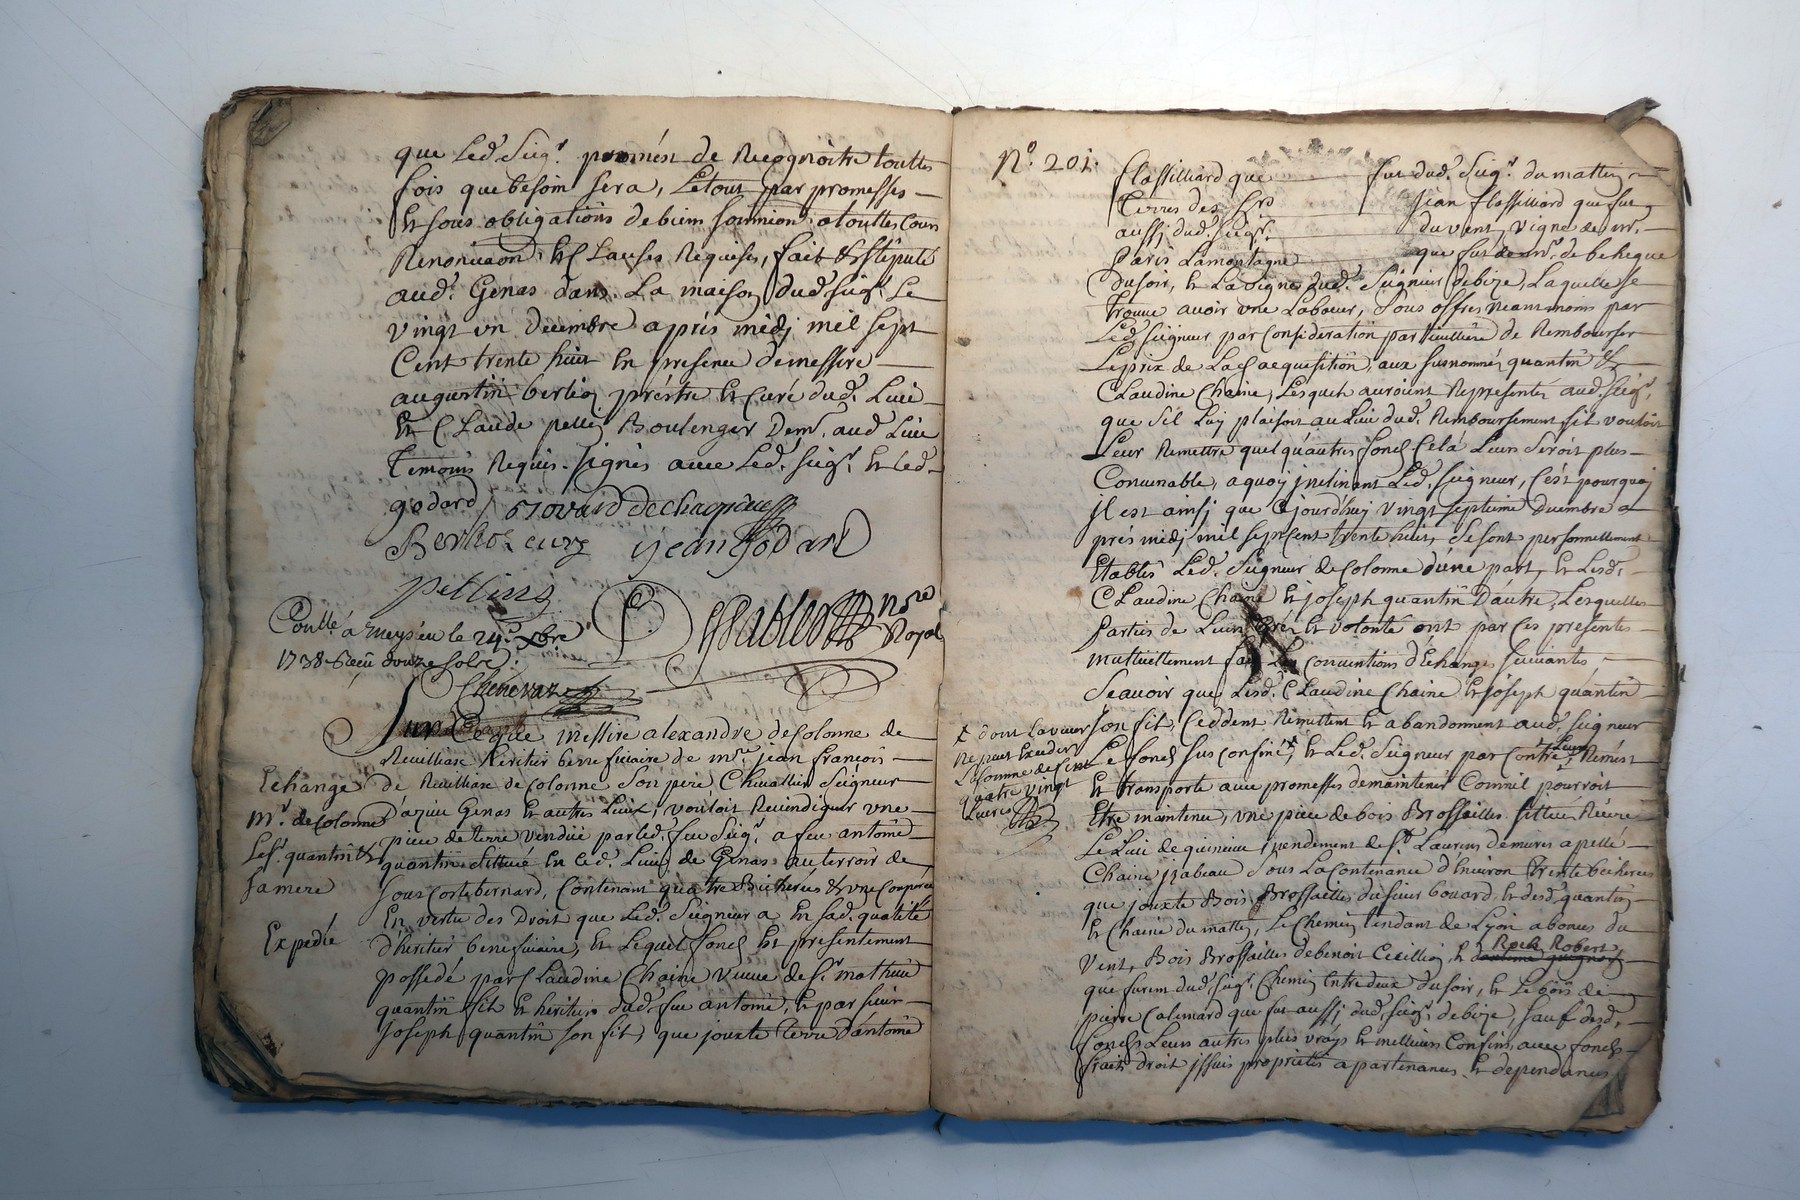 que Led. Seigr. promést de Recognoitre touttes
fois que besoin sera, Le tout par promesses
Et sous obligations de biens soumiond. a touttes Cours
Renonciaon. Et Clauses Requises, fait & stipulé
aud. Genas dans La maison dud. seigr. Le
vingt un decembre apres midj mil sept
Cent trente huit En presence de messire
augustin berlioz prêstre Et Curé dud. Lieu
Et Claude pellin Boulenger Dem. aud. Lieu
Temoins Requis. signés avec Led. seigr. Et Led.
godard
Jean Godard
Pellin
nore Royal
Conllé a meysieu le 24e. Xbre
1738. Recu douze sols
Chenevaz
Sur ce que messire alexandre de Colonne de
Reuilliase heritier beneficiaire de mre. jean francois
de Reuilliase de Colonne son pere, Chevallier Seigneur
d'azieu Genas Et autres Lieux, vouloit Revindiquer une
piece de terre vendüe par led. feu Seigr. a feu antoine
quantin scittuée En ced. Lieu de Genas au terroir de
sous cortebernard, Contenant quatre Bicherées & une Couporée
En vertu des Droit que Led. Seigneur a En sad. qualité
d'heritier beneficiaire, Et Lequel fond Est presentement
possedé par Claudine Chaine veuve de sr. mathieu
quantin fils Et heritier dud. feu antoine, Et par sieur
Joseph quantin son fils, que jouxte terre d'antoine
Echange
Mr. de Colonne
Le sr. quantin &
sa mere
Expedié
No. 201.
flassilliard que fut dud. Seigr. du mattin
Terres des hrs Jean flassilliard que fut
aussj dud. seigr. du vent, vigne de mr.
Paris Lamontagne que fut de mr. de beheque
du soir, Et La vigne dud. Seigneur de bize, Laquelle se
trouve avoir une Laboeur, sous offres neanmoins par
Led. seigneur par Consideration particulliere de Rembourser
Le prix de Lad. acquisition, aux susnommés quantin &
Claudine Chaine, Lesquels auroient Representé aud. seigr.
que s'il Luy plaisoit au Lieu dud. Remboursement fit vouloir
Leur Remettre quelqu'autres fond Cela Leur seroit plus
Convenable, a quoy jnclinant Led. seigneur, C'est pourquoj
jl est ainsj que Cejourd'huy vingt septieme decembre a
prés midj mil sept Cent trente huit, se sont personnellement
Etablis Led. Seigneur de Colonne d'une part, Et Lesd.
Claudine Chaine Et joseph quantin D'autre, Lesquelles
parties de Leurs grés Et volonté ont par ces presentes
mutuellement fait Les Conventions d'Echange suivantes
Scavoir que Lesd. Claudine Chaine Et joseph quantin
son fils, Ceddent Remettent Et abandonnent aud. seigneur
Le fond sus confiné, Et Led. Seigneur par Contre Leurs Remest
Et transporte avec promesses de maintenir Comm'il pourroit
Etre maintenu, une piece de bois Brossailles scittué Riere
Le Lieu de quinsieux pendement de St. Laurens de mures apellé
Chaine jzabeau sous La contenance d'Environ trente bicherées
que jouxte Bois Brossailles du sieur bouard Et desd. quantin
Et Chaine du mattin, Le Chemin tendant de Lyon a bonas du
vent, Bois Brossailles de benoit Cecillion, Et Roch Robert
que furent dud. seigr. Chemin Entre deux du soir, Et Le bois de
pierre Calemard que fut aussj dud. seigr. de bize, sauf desd.
fonds Leurs autres plus vrays Et meilleurs Confins avec fonds
fraits droit jssues proprietés apartenances Et dependances
+ dont La valeur
La somme de Cent
quatre vingt
Livres